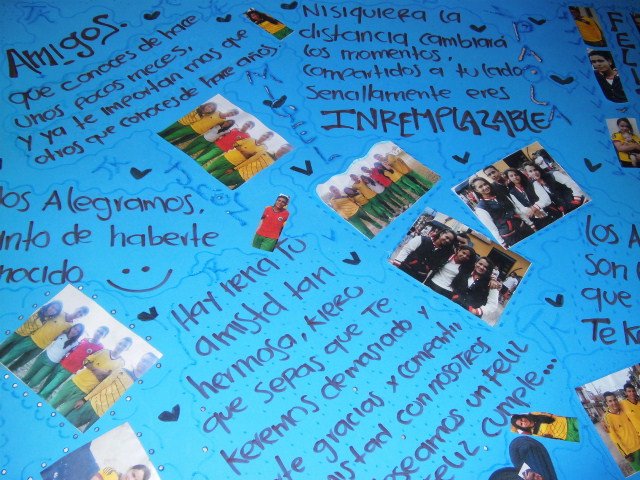 Amigos.
que conoces de hace
unos pocos meces,
y ya te importan mas que
otros que conoces de hace años.
Ni siquiera la
distancia cambiará
los momentos,
compartidos a tu lado
Sencillamente eres
INREMPLAZABLE
PAOLA
Alegramos,
de haberte
nocido
Hay tena tu
amistad tan
hermosa, kiero
que sepas que te
keremos demasiado y
gracias x compartir
con nosotros
un feliz
feliz cumple...
los A
son
que
Te k